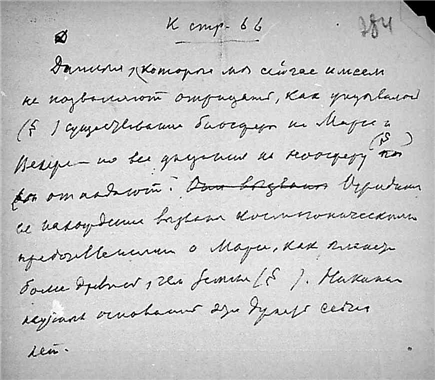 К стр. 66
284
Данные, которые мы сейчас имеем
не позволяют отрицать, как указывалось
(§ ) существование биосферы на Марсе и
Венере – но все указания на ноосферу (§ )
отпадают.
ее нахождение вызвана космогоническими
представлениями о Марсе, как планете
более древней, чем Земля (§ ). Никаких
научных оснований для думать сейчас
нет.